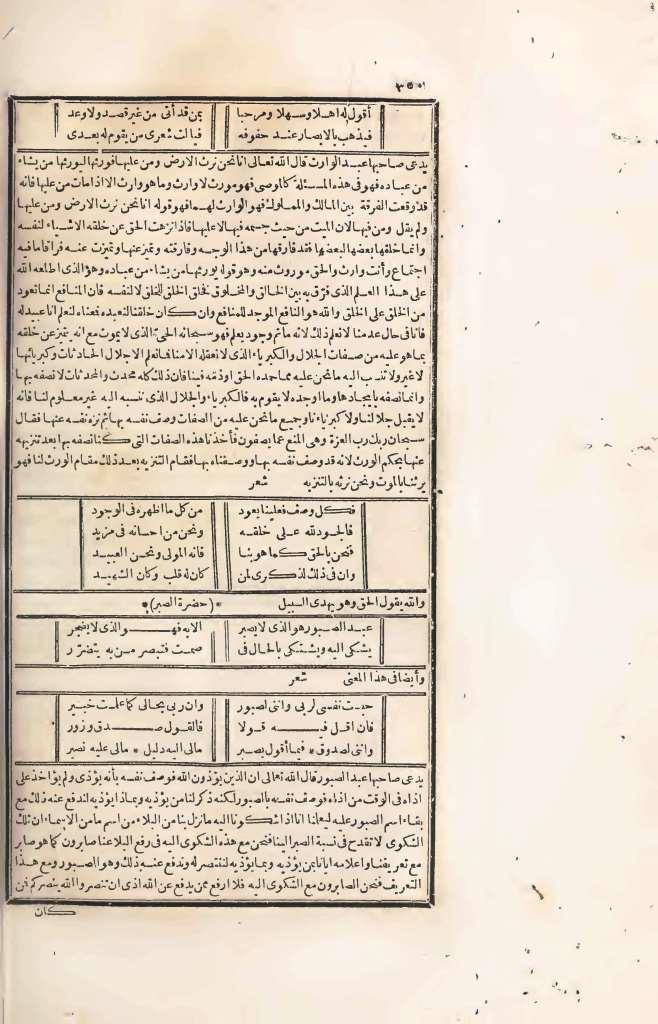 ٣٥٥
أقول له اهلا وسهلا ومرحبا بمن قد أتى من غير قصد ولا وعد
فيذهب بالابصار عند حفوفه فياليت شعرى من يقوم له بعدى
يدعى صاحبها عبد الوارث قال الله تعالى انا نحن نرث الارض ومن عليها فورثها ليورثها من يشاء
من عباده فهو فى هذه المسئلة كالموصى فهو مورث لا وارث وما هو وارث الا اذا مات من عليها فانه
قد وقعت الفرقة بين المالك والمملوك فهو الوارث لهما فهو قوله انا نحن نرث الارض ومن عليها
ولم يقل ومن فيها لان الميت من حيث جسمه فيها لا عليها فاذا نزهت الحق عن خلقه الاشياء لنفسه
وانما خلقها بعضها لبعضها فقد فارقها من هذا الوجه وفارقته وتميز عنها وتميزت عنه فراقا ما فيه
اجتماع وأنت وارث والحق موروث منه وهو قوله يورثها من يشاء من عباده وهو الذى اطلعه الله
على هذا العلم الذى فرق به بين الخالق والمخلوق فخلق الخلق للخلق لا لنفسه فان المنافع انما تعود
من الخلق على الخلق والله هو النافع الموجد للمنافع وان كان خلقنا لنعبده فمعناه لنعلم انا عبيد له
فانا فى حال عدمنا لا نعلم ذلك لانه ما ثم وجود يعلم فهو سبحانه الحى الذى لا يموت مع انه يتميز عن خلقه
بما هو عليه من صفات الجلال والكبرياء الذى لا نعقله الا منا فما نعلم الا جلال الحادثات وكبريائها
لا غير ولا تنسب اليه ما نحن عليه مما حمده الحق او ذمه فينا فان ذلك كله محدث والمحدثات لا نصفه بها
وانما نصفه بايجادها وما اوجده لا يقوم به فالكبرياء والجلال الذى ننسبه اليه غير معلوم لنا فانه
لا يقبل جلالنا ولا كبرياءنا وجميع ما نحن عليه من الصفات وصف نفسه بها ثم نزه نفسه عنها فقال
سبحان ربك رب العزة وهى المنع عما يصفون فأخذنا هذه الصفات التى كنا نصفه بها بعد تنزيهه
عنها بحكم الورث لانه قد وصف نفسه بها ووصفناه بها فقام التنزيه بعد ذلك مقام الورث لنا فهو
يرثنا بالموت ونحن نرثه بالتنزيه شعر
فكل وصف فعلينا يعود من كل ما اظهره فى الوجود
فالجود لله على خلقه ونحن من احسانه فى مزيد
فنحن بالحق كما هو بنا فانه المولى ونحن العبيد
وان فى ذلك لذكرى لمن كان له قلب وكان الشهيد
والله يقول الحق وهو يهدى السبيل *(حضرة الصبر)*
عبد الصبور هو الذى لا يصبر الا به فهو الذى لا يضجر
يشتكى اليه ويشتكى بالحال فى صمت فتبصر من به يتضرر
وأيضا فى هذا المعنى شعر
حبست نفسى لربى واننى لصبور وان ربى بحالى كما علمت خبير
فان اقل فيه قولا فالقول صدق وزور
واننى لصدوق * فيما أقول بصير مالى اليه دليل * مالى عليه نصير
يدعى صاحبها عبد الصبور قال الله تعالى ان الذين يؤذون الله فوصف نفسه بأنه يؤذى ولم يؤاخذ على
اذاه فى الوقت من اذاه فوصف نفسه بالصبور لكنه ذكر لنا من يؤذيه وبماذا يؤذيه لندفع عنه ذلك مع
بقاء اسم الصبور عليه ليعلمنا انا اذا شكونا اليه ما نزل بنا من البلاء من اسم ما من الاسماء ان تلك
الشكوى لا تقدح فى نسبة الصبر الينا فنحن مع هذه الشكوى اليه فى رفع البلاء عنا صابرون كما هو صابر
مع تعريفنا واعلامه ايانا بمن يؤذيه وبما يؤذيه لننتصر له وندفع عنه ذلك وهو الصبور ومع هذا
التعريف فنحن الصابرون مع الشكوى اليه فلا ارفع ممن يدفع عن الله اذى ان تنصروا الله ينصركم فمن
كان